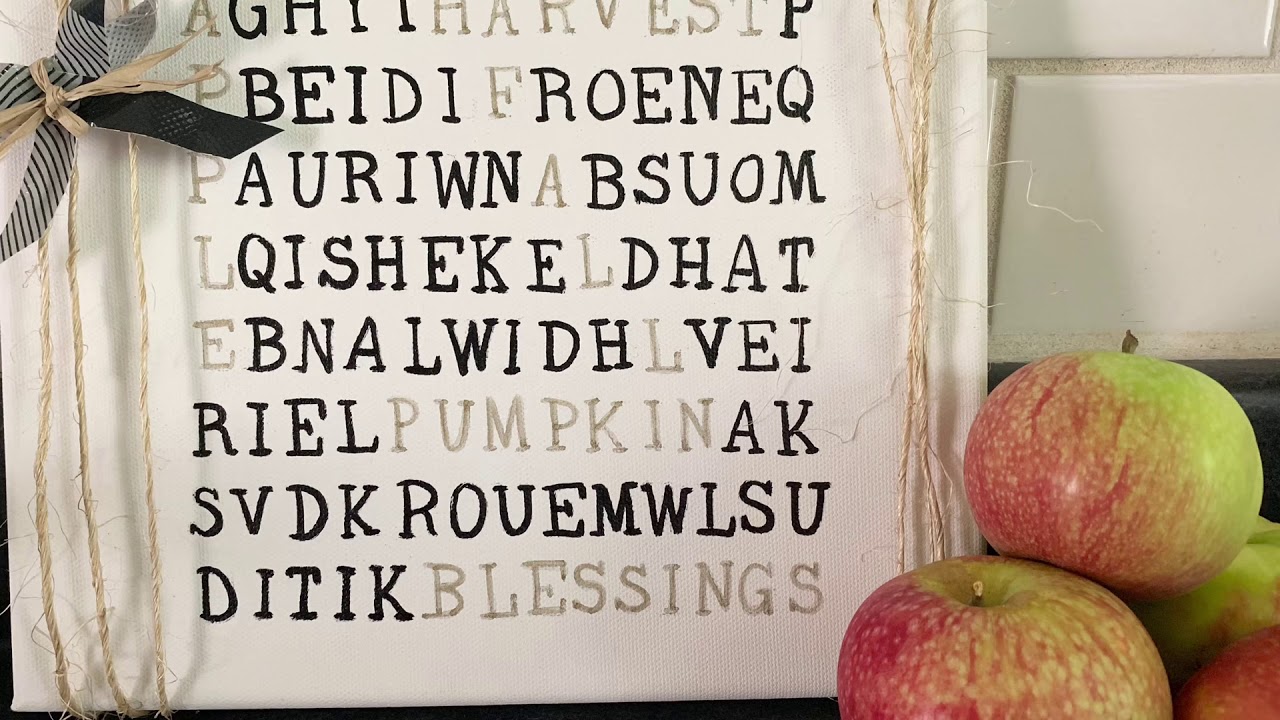 AGHYIHARVESTP
PBEIDIFROENEQ
PAURIWNABSUOM
LQISHEKELDHAT
EBNALWIDHLVEI
RIELPUMPKINAK
SVDKROUEMWLSU
DITIKBLESSINGS